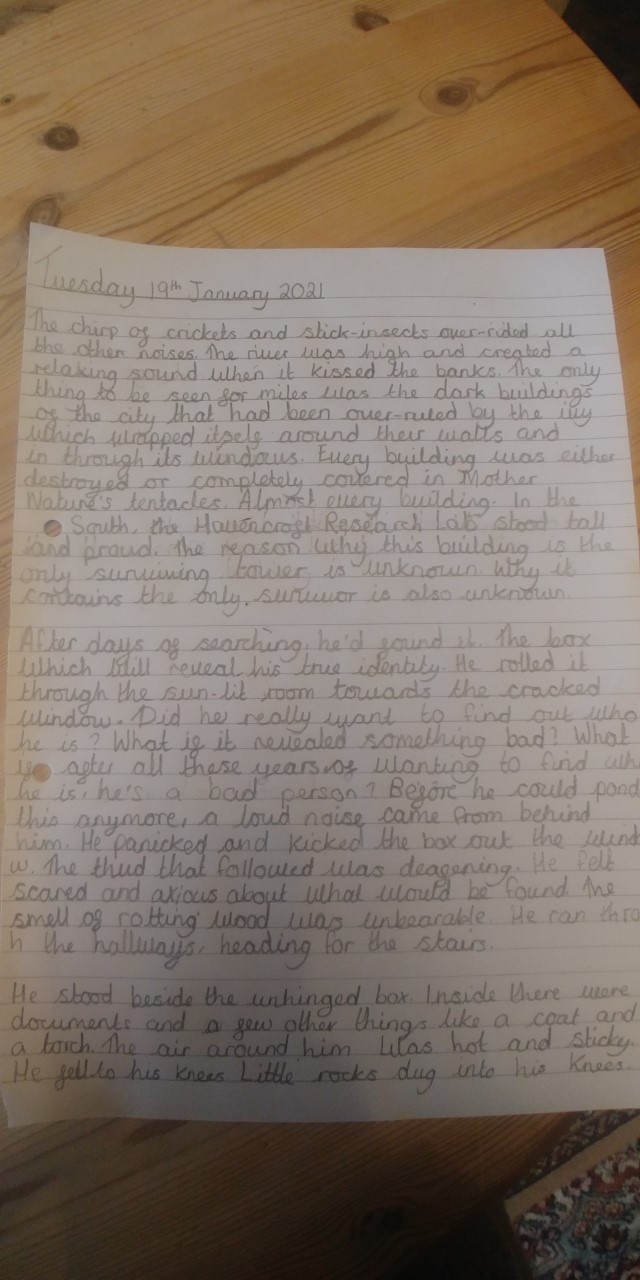 Tuesday 19th January 2021
The chirp of crickets and stick-insects over-rided all
the other noises. The river was high and created a
relaxing sound when it kissed the banks. The only
thing to be seen for miles was the dark buildings
of the city that had been over-ruled by the ivy
which wrapped itself around their walls and
in through its windows. Every building was either
destroyed or completely covered in Mother
Nature's tentacles. Almost every building. In the
South, the Havencroft Research Lab stood tall
and proud. The reason why this building is the
only surviving tower is unknown. Why it
contains the only survivor is also unknown.
After days of searching, he'd found it. The box
which will reveal his true identity. He rolled it
through the sun-lit room towards the cracked
window. Did he really want to find out who
he is? What if it revealed something bad? What
if after all these years of wanting to find wh
he is, he's a bad person? Before he could pond
this anymore, a loud noise came from behind
him. He panicked and kicked the box out the wind
w. The thud that followed was deafening. He felt
scared and axious about what would be found. The
smell of rotting wood was unbearable. He ran thro
h the hallways, heading for the stairs.
He stood beside the unhinged box. Inside there were
documents and a few other things like a coat and
a torch. The air around him was hot and sticky.
He fell to his knees. Little rocks dug into his knees